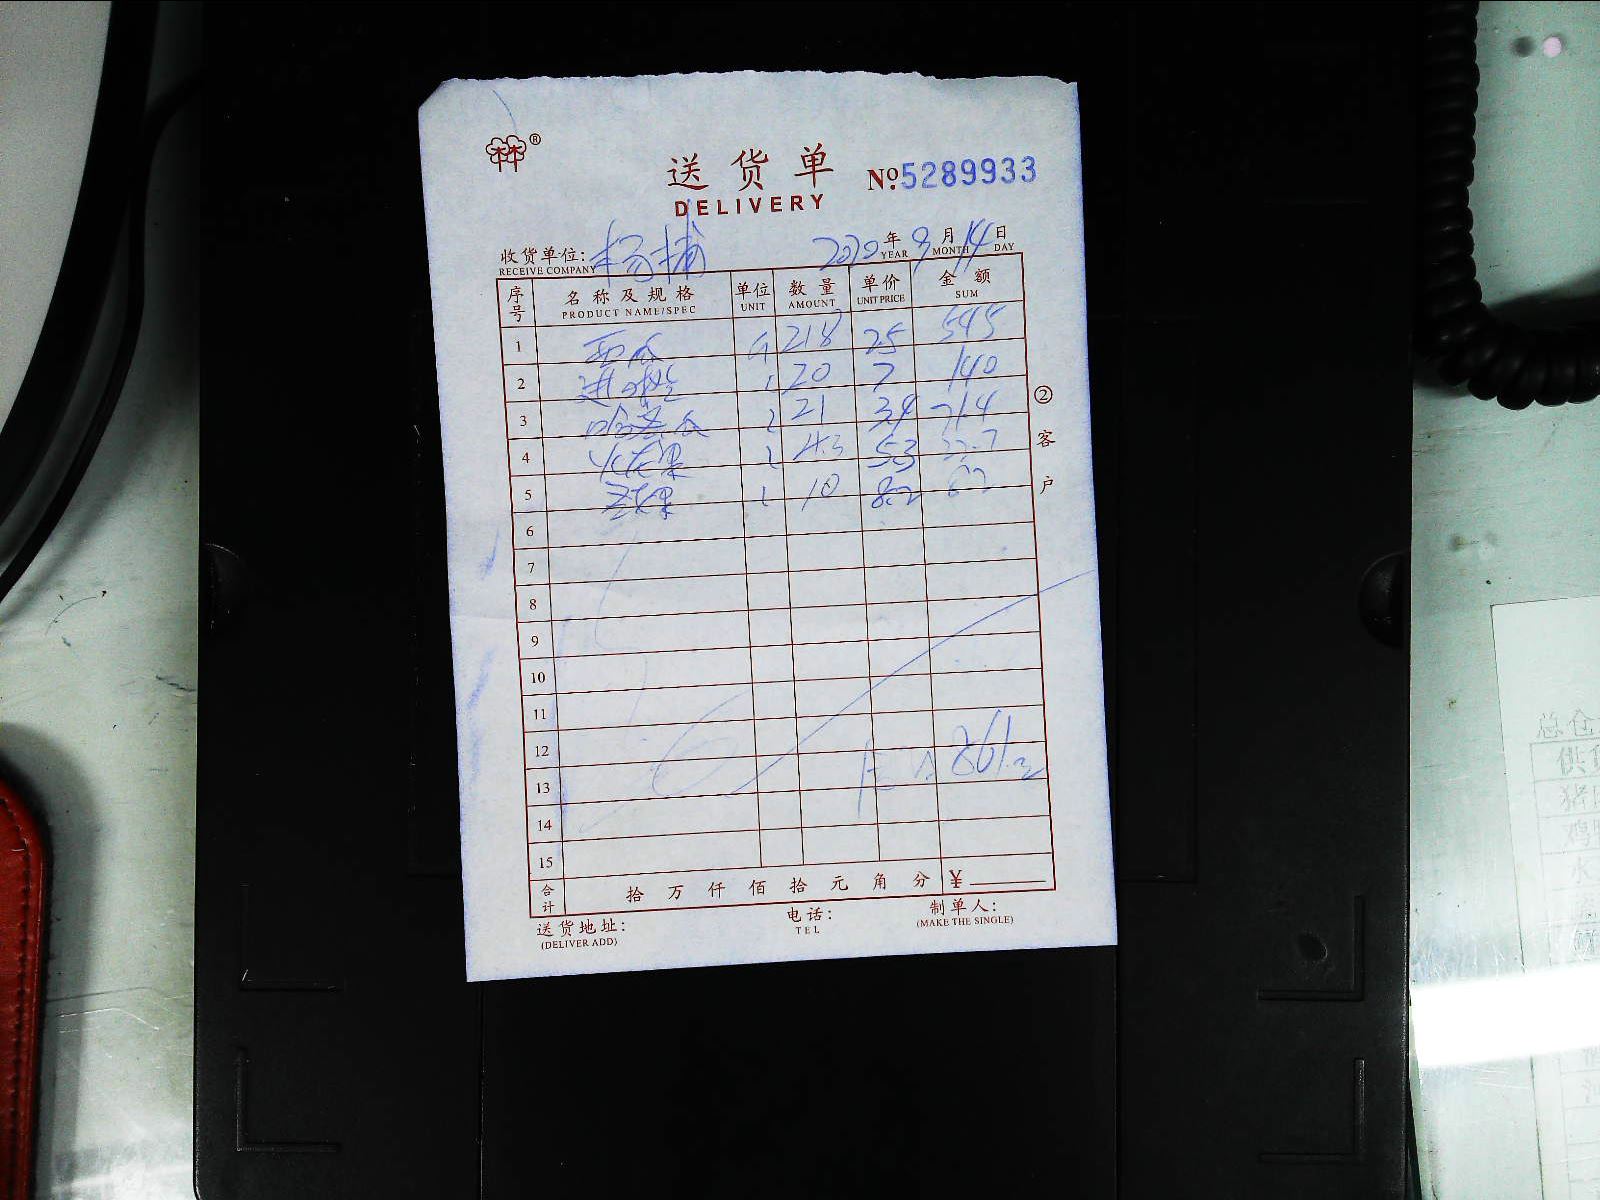 林®
送货单
DELIVERY
№ 5289933
收货单位: 杨浦
RECEIVE COMPANY
2020年9月14日
YEAR MONTH DAY
序号 名称及规格 单位 数量 单价 金额
PRODUCT NAME/SPEC UNIT AMOUNT UNIT PRICE SUM
1 西瓜 218 2.5 545
2 20 7 140
3 哈密瓜 21 3.4 71.4
4 火龙果 4.3 5.3 22.7
5 10 8.2 82
6
7
8
9
10
11
12
13 861.2
14
15
合计 拾万仟佰拾元角分 ¥
送货地址:
(DELIVER ADD)
电话:
TEL
制单人:
(MAKE THE SINGLE)
②客户
总仓
供
猪
鸡
水